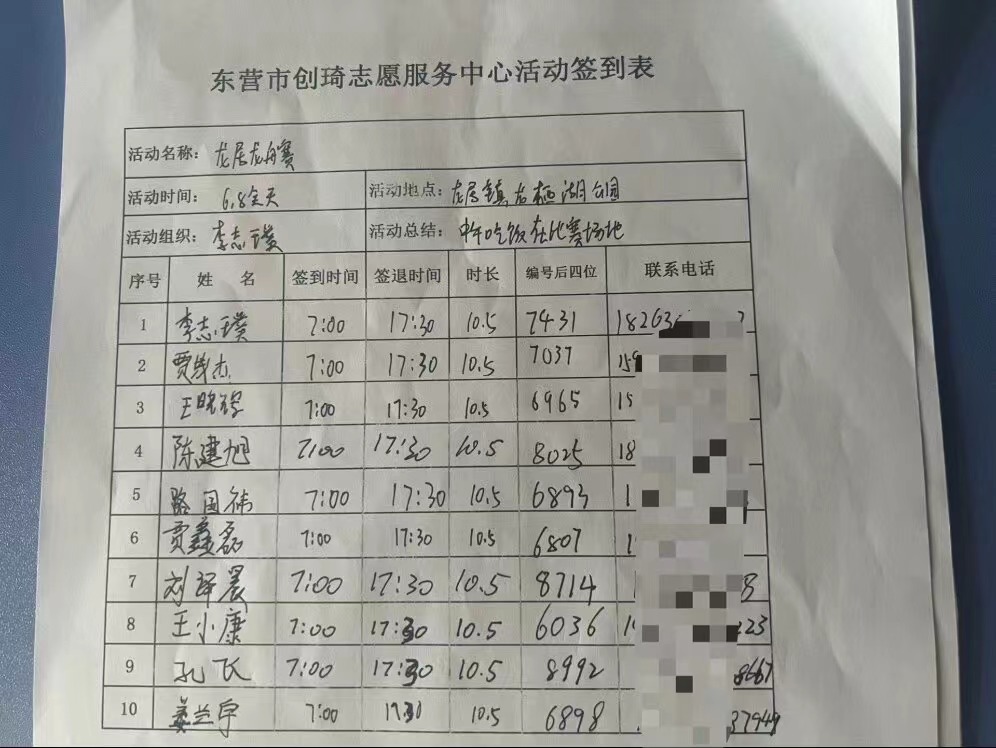 东营市创琦志愿服务中心活动签到表
活动名称：龙居龙舟赛
活动时间：6.8全天 活动地点：龙居镇龙栖湖公园
活动组织：李志璞 活动总结：中午吃饭在比赛场地
序号 姓名 签到时间 签退时间 时长 编号后四位 联系电话
1 李志璞 7:00 17:30 10.5 7431 18263
2 贾 杰 7:00 17:30 10.5 7037 159
3 王晓 7:00 17:30 10.5 6965 15
4 陈建旭 7:00 17:30 10.5 8025 18
5 路国伟 7:00 17:30 10.5 6893 1
6 贾鑫磊 7:00 17:30 10.5 6807 1
7 刘泽晨 7:00 17:30 10.5 8714 8
8 王小康 7:00 17:30 10.5 6036 1 223
9 孔飞 7:00 17:30 10.5 8992 8667
10 姜兰宇 7:00 17:30 10.5 6898 37949